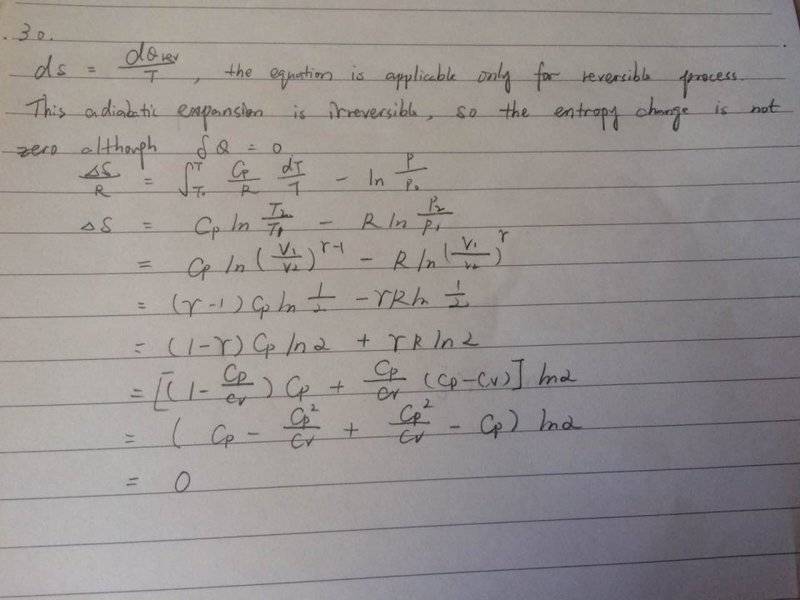 30.
ds = dQrev/T , the equation is applicable only for reversible process.
This adiabatic expansion is irreversible, so the entropy change is not
zero although δQ = 0
ΔS/R = ∫_{T₀}^{T} Cp/R dT/T - ln P/P₀
ΔS = Cp ln T₂/T₁ - R ln P₂/P₁
= Cp ln (V₁/V₂)^{r-1} - R ln (V₁/V₂)^{r}
= (r-1) Cp ln 1/2 - rR ln 1/2
= (1-r) Cp ln2 + rR ln2
= [(1 - Cp/Cv) Cp + Cp/Cv (Cp-Cv)] ln2
= ( Cp - Cp²/Cv + Cp²/Cv - Cp) ln2
= 0